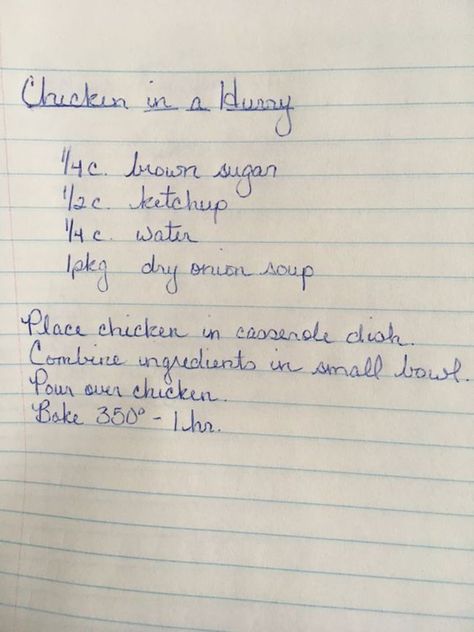 Chicken in a Hurry
1/4 c. brown sugar
1/2 c. ketchup
1/4 c. water
1 pkg dry onion soup
Place chicken in casserole dish.
Combine ingredients in small bowl.
Pour over chicken.
Bake 350° - 1 hr.